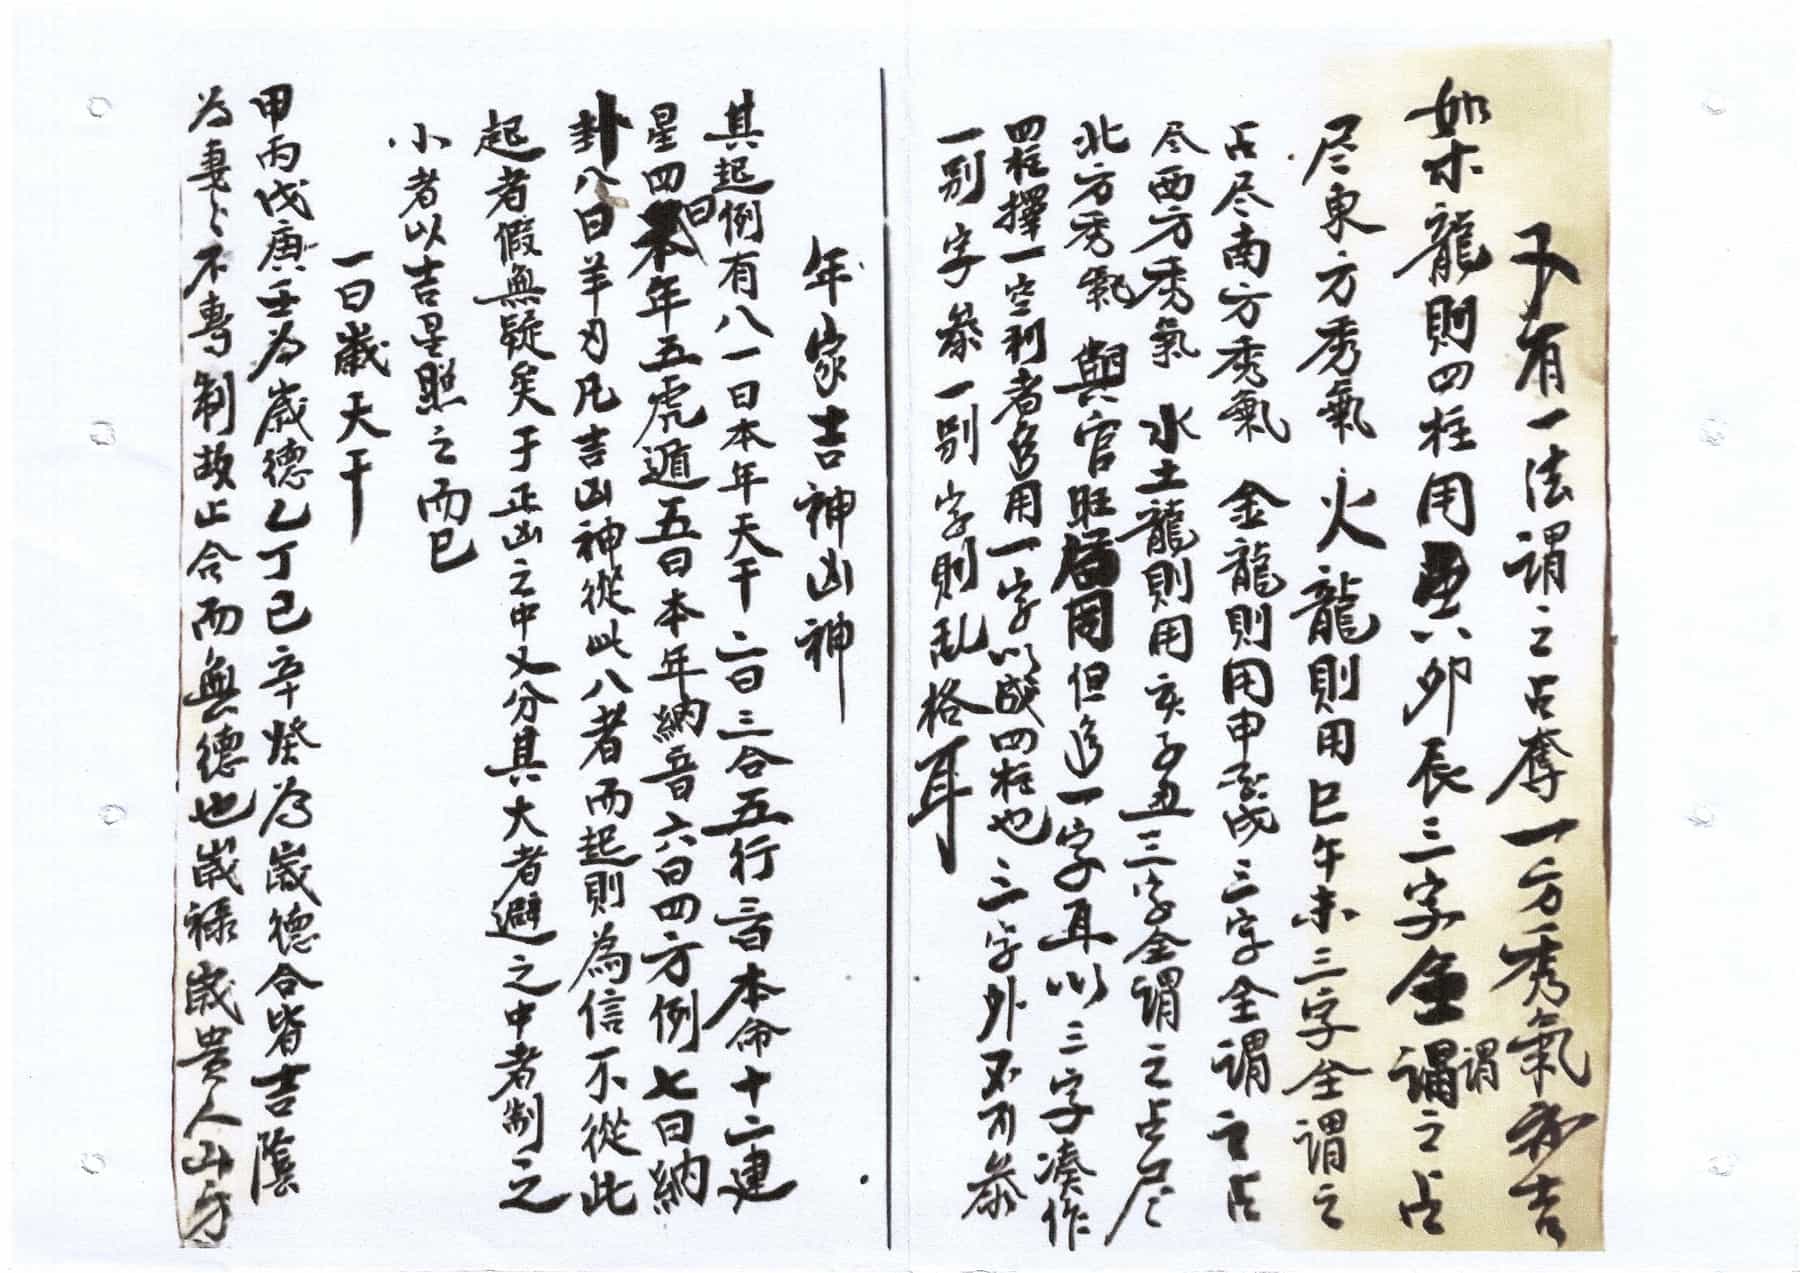 又有一法謂之占奪一方秀氣亦吉
如木龍則四柱用寅卯辰三字全謂之占
尽東方秀氣 火龍則用巳午未三字全謂之
占尽南方秀氣 金龍則用申酉戌三字全謂之占
尽西方秀氣 水土龍則用亥子丑三字全謂之占尽
北方秀氣 與官旺局同但追一字耳以三字凑作
四柱擇一空利者多用一字以成四柱也三字外不可叅
一别字叅一别字則乱格耳
年家吉神凶神
其起例有八一曰本年天干二曰三合五行三曰本命十二連
星四曰本年五虎遁五曰本年納音六曰四方例七曰納
卦八曰羊刃凡吉凶神從此八者而起則為信不從此
起者假無疑矣于正凶之中又分其大者避之中者制之
小者以吉星照之而已
一曰歲天干
甲丙戊庚壬為歲德乙丁己辛癸為歲德合皆吉陰
為妻妻不專制故止合而無德也歲禄歲貴人山方